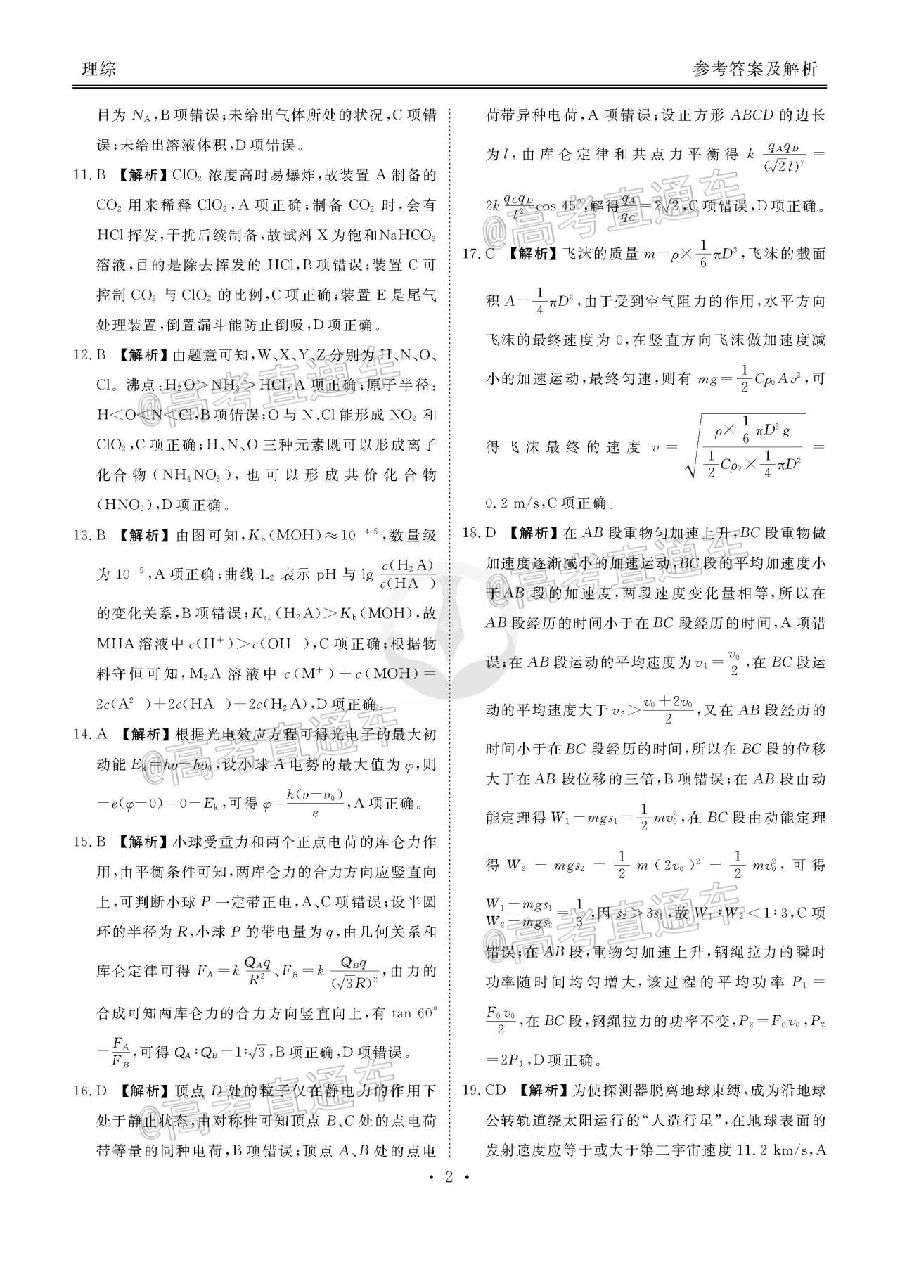 理综
参考答案及解析
目为 N_A,B项错误;未给出气体所处的状况,C项错
误;未给出溶液体积,D项错误。
11. B 【解析】ClO₂ 浓度高时易爆炸,故装置 A 制备的
CO₂ 用来稀释 ClO₂,A 项正确;制备 CO₂ 时,会有
HCl挥发,干扰后续制备,故试剂 X 为饱和NaHCO₃
溶液,目的是除去挥发的 HCl,B项错误;装置 C 可
控制 CO₂ 与 ClO₂ 的比例,C项正确;装置 E 是尾气
处理装置,倒置漏斗能防止倒吸,D项正确。
12. B 【解析】由题意可知,W、X、Y、Z分别为 H、N、O、
Cl。沸点:H₂O>NH₃>HCl,A 项正确;原子半径:
H<O<N<Cl,B项错误;O与 N、Cl能形成 NO₂ 和
ClO₂,C项正确;H、N、O 三种元素既可以形成离子
化合物(NH₄NO₃),也可以形成共价化合物
(HNO₃),D项正确。
13. B 【解析】由图可知,K_b(MOH)≈10⁻⁴·⁵,数量级
为 10⁻⁵,A项正确;曲线 L₂ 表示 pH 与 lg c(H₂A)/c(HA⁻)
的变化关系,B项错误;K_a1(H₂A)>K_b(MOH),故
MHA 溶液中 c(H⁺)>c(OH⁻),C项正确;根据物
料守恒可知,M₂A 溶液中 c(M⁺)+c(MOH)=
2c(A²⁻)+2c(HA⁻)+2c(H₂A),D项正确。
14. A 【解析】根据光电效应方程可得光电子的最大初
动能 E_k=hν-hν₀;设小球 A 电势的最大值为 φ,则
-e(φ-0)=0-E_k,可得 φ=h(ν-ν₀)/e,A项正确。
15. B 【解析】小球受重力和两个正点电荷的库仑力作
用,由平衡条件可知,两库仑力的合力方向应竖直向
上,可判断小球 P 一定带正电,A、C项错误;设半圆
环的半径为 R,小球 P 的带电量为 q,由几何关系和
库仑定律可得 F_A=k Q_Aq/R²、F_B=k Q_Bq/(√3R)²,由力的
合成可知两库仑力的合力方向竖直向上,有 tan 60°
=F_A/F_B,可得 Q_A:Q_B=1:√3,B项正确,D项错误。
16. D 【解析】顶点 D 处的粒子仅在静电力的作用下
处于静止状态,由对称性可知顶点 B、C 处的点电荷
带等量的同种电荷,B项错误;顶点 A、B 处的点电
荷带异种电荷,A 项错误;设正方形 ABCD 的边长
为 l,由库仑定律和共点力平衡得 k q_Aq_D/(√2l)² =
2k q_Cq_D/l² cos 45°,解得 q_A/q_C=2√2,C项错误,D项正确。
17. C 【解析】飞沫的质量 m=ρ×1/6 πD³,飞沫的截面
积 A=1/4 πD²,由于受到空气阻力的作用,水平方向
飞沫的最终速度为 0,在竖直方向飞沫做加速度减
小的加速运动,最终匀速,则有 mg=1/2 Cρ₀Av²,可
得飞沫最终的速度 v = √(ρ×1/6 πD³g / (1/2 Cρ₀×1/4 πD²)) =
0.2 m/s,C项正确。
18. D 【解析】在 AB 段重物匀加速上升,BC 段重物做
加速度逐渐减小的加速运动,BC 段的平均加速度小
于 AB 段的加速度,两段速度变化量相等,所以在
AB 段经历的时间小于在 BC 段经历的时间,A 项错
误;在 AB 段运动的平均速度为 v₁=v₀/2,在 BC 段运
动的平均速度大于 v₂>(v₀+2v₀)/2,又在 AB 段经历的
时间小于在 BC 段经历的时间,所以在 BC 段的位移
大于在 AB 段位移的三倍,B项错误;在 AB 段由动
能定理得 W₁-mgs₁=1/2 mv₀²,在 BC 段由动能定理
得 W₂-mgs₂=1/2 m(2v₀)²-1/2 mv₀²,可得
(W₁-mgs₁)/(W₂-mgs₂)=1/3,因 s₂>3s₁,故 W₁:W₂<1:3,C 项
错误;在 AB 段,重物匀加速上升,钢绳拉力的瞬时
功率随时间均匀增大,该过程的平均功率 P₁ =
F₀v₀/2,在 BC 段,钢绳拉力的功率不变,P₂=F₀v₀,P₂
=2P₁,D项正确。
19. CD 【解析】为使探测器脱离地球束缚,成为沿地球
公转轨道绕太阳运行的“人造行星”,在地球表面的
发射速度应等于或大于第二宇宙速度 11.2 km/s,A
· 2 ·
@高考直通车
@高考直通车
@高考直通车
@高考直通车
@高考直通车
@高考直通车
@高考直通车